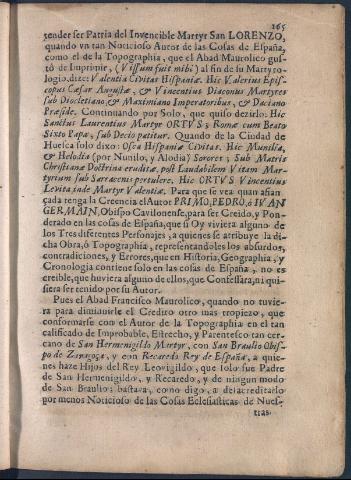 265
tender ser Patria del Invencible Martyr San LORENZO,
quando vn tan Noticioso Autor de las Cosas de España,
como el de la Topographia, que el Abad Maurolico gus-
tò de Imprimir, (Vissum fuit mihi) al fin de su Martyro-
logio, dize: Valentia Civitas Hispaniæ. Hic Valerius Epis-
copus Cæsar Augustæ, & Vincentius Diaconus Martyres
sub Diocletiano, & Maximiano Imperatoribus, & Daciano
Præside. Continuando por Solo, que quiso dezirlo: Hic
Sanctus Laurentius Martyr ORTVS; Romæ cum Beato
Sixto Papa, sub Decio patitur. Quando de la Ciudad de
Huesca solo dixo: Osca Hispaniæ Civitas. Hic Munilia,
& Helodia (por Nunilo, y Alodia) Sorores, Sub Matris
Christianæ Doctrina eruditæ, post Laudabilem Vitam Mar-
tyrium sub Sarracenis pertulere. Hic ORTVS Vincentius
Levita, inde Martyr Valentiæ. Para que se vea quan afian-
çada tenga la Creencia el Autor PRIMO, PEDRO, ò IVAN
GERMAIN, Obispo Cavilonense, para ser Creido, y Pon-
derado en las cosas de España, que si Oy viviera alguno de
los Tres diferentes Personajes, a quienes se atribuye la di-
cha Obra, ò Topographia, representandoles los absurdos,
contradiciones, y Errores, que en Historia, Geographia, y
Cronologia contiene solo en las cosas de España, no es
creible, que huviera alguno de ellos, que Confessàra, ni qui-
siera ser tenido por su Autor.
Pues el Abad Francisco Maurolico, quando no tuvie-
ra para diminuirle el Credito otro mas tropiezo, que
conformarse con el Autor de la Topographia en el tan
calificado de Improbable, Estrecho, y Parentesco tan cer-
cano de San Hermenigildo Martyr, con San Braulio Obis-
po de Zaragoça, y con Recaredo Rey de España, a quie-
nes haze Hijos del Rey Leovigildo, que solo fue Padre
de San Hermenigildo, y Recaredo, y de ningun modo
de San Braulio; bastava, como digo, a desacreditarlo
por menos Noticioso de las Cosas Eclesiasticas de Nues-
tras.